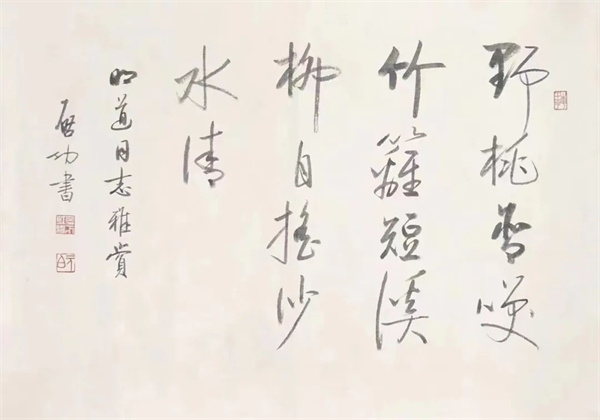 野桃含咲
竹籬短溪
柳自搖沙
水清
明道同志雅賞
启功書